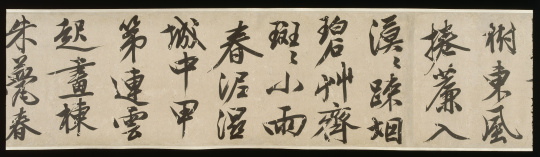 樹東風
捲簾入
漠〻踈烟
碧艸齊
斑〻小雨
春泥濕
城中甲
第連雲
起畫棟
朱甍春